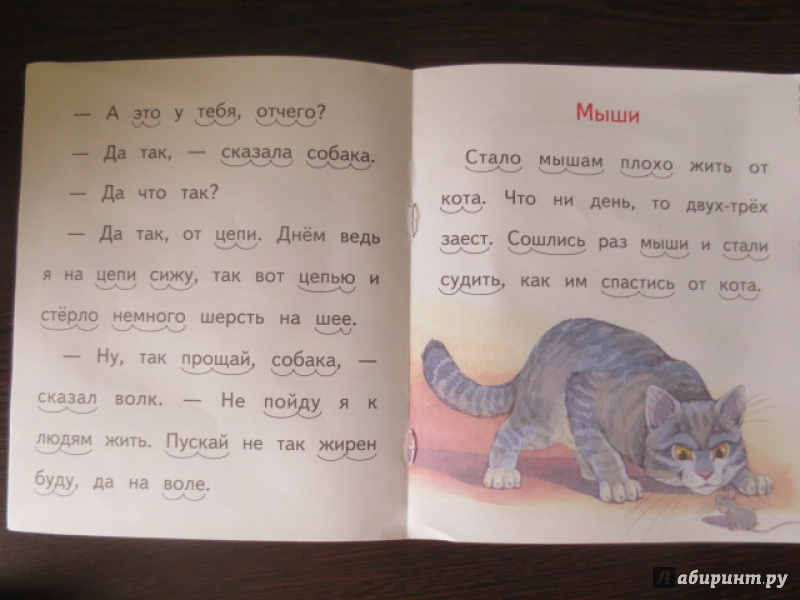 — А это у тебя, отчего?
— Да так, — сказала собака.
— Да что так?
— Да так, от цепи. Днём ведь
я на цепи сижу, так вот цепью и
стёрло немного шерсть на шее.
— Ну, так прощай, собака, —
сказал волк. — Не пойду я к
людям жить. Пускай не так жирен
буду, да на воле.
Мыши
Стало мышам плохо жить от
кота. Что ни день, то двух-трёх
заест. Сошлись раз мыши и стали
судить, как им спастись от кота.
Лабиринт.ру